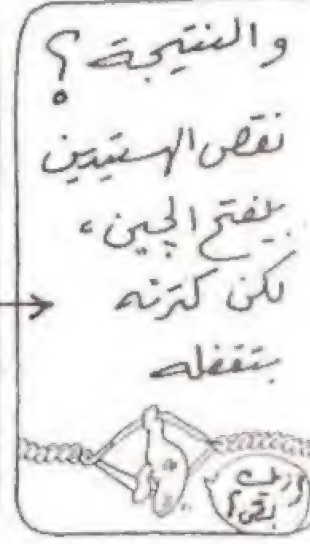 والنتيجة؟
نقص الهستيدين
بيفتح الجين،
لكن كترته
بتقفله
إزيك
بقى؟